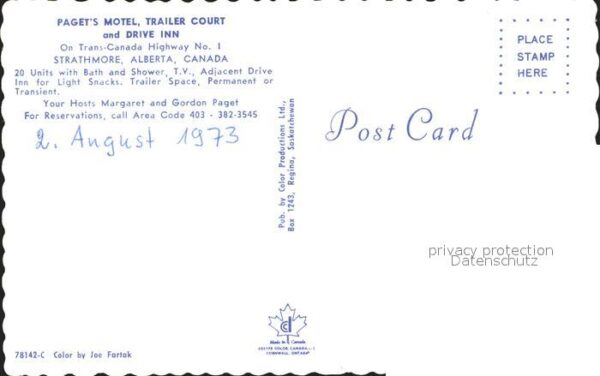 PAGET'S MOTEL, TRAILER COURT
and DRIVE INN
On Trans-Canada Highway No. 1
STRATHMORE, ALBERTA, CANADA
20 Units with Bath and Shower, T.V., Adjacent Drive
Inn for Light Snacks. Trailer Space, Permanent or
Transient.
Your Hosts Margaret and Gordon Paget
For Reservations, call Area Code 403 - 382-3545
2. August 1973
Pub. by Color Productions Ltd.,
Box 1243, Regina, Saskatchewan
PLACE
STAMP
HERE
Post Card
privacy protection
Datenschutz
Made in Canada
CORNWALL, ONTARIO
78142-C Color by Joe Fartak